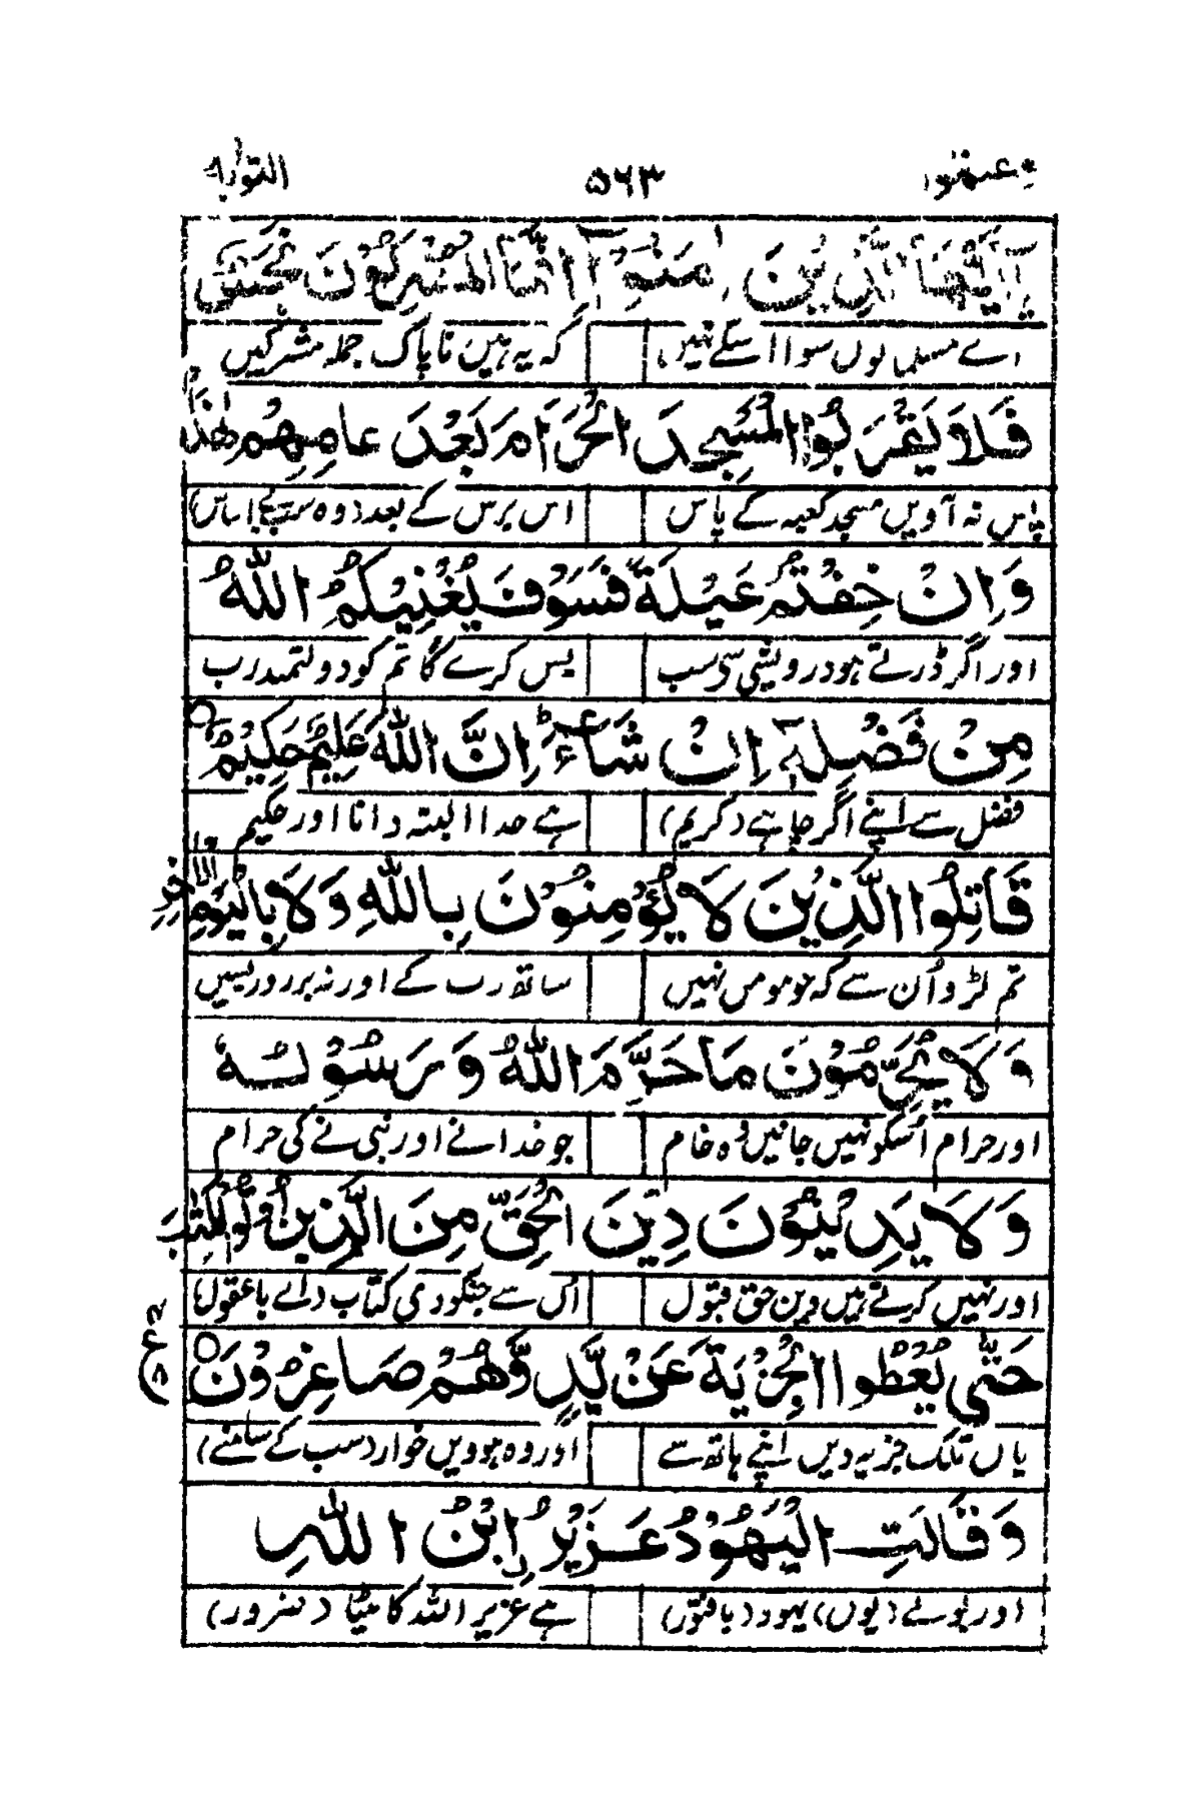 ۵۶۳ التوبة ۹
یٰۤاَیُّهَا الَّذِیْنَ اٰمَنُوْۤا اِنَّمَا الْمُشْرِكُوْنَ نَجَسٌ
اے مسلمانوں سوا اسکے نہیں کہ یہ ہیں ناپاک جملہ مشرکیں
فَلَا یَقْرَبُوا الْمَسْجِدَ الْحَرَامَ بَعْدَ عَامِهِمْ هٰذَا
پاس نہ آویں مسجد کعبہ کے پاس اس برس کے بعد (وہ سب بے اساس)
وَاِنْ خِفْتُمْ عَیْلَةً فَسَوْفَ یُغْنِیْكُمُ اللّٰهُ
اور اگر ڈرتے ہو درویشی سی سب پس کرے گا تم کو دولتمند رب
مِنْ فَضْلِهٖۤ اِنْ شَآءَ ؕ اِنَّ اللّٰهَ عَلِیْمٌ حَكِیْمٌ ○
فضل سے اپنے اگر چاہے (کریم) ہے خدا البتہ دانا اور حکیم
قَاتِلُوا الَّذِیْنَ لَا یُؤْمِنُوْنَ بِاللّٰهِ وَلَا بِالْیَوْمِ الْاٰخِرِ
تم لڑو اُن سے کہ جو مومن نہیں ساتھ رب کے اور نہ بر روز پسیں
وَلَا یُحَرِّمُوْنَ مَا حَرَّمَ اللّٰهُ وَرَسُوْلُهٗ
اور حرام اُسکو نہیں جانیں وہ خام جو خدا نے اور نبی نے کی حرام
وَلَا یَدِیْنُوْنَ دِیْنَ الْحَقِّ مِنَ الَّذِیْنَ اُوْتُوا الْكِتٰبَ
اور نہیں کرتے ہیں دین حق قبول اُس سے جنکو دی کتاب (اے باعقول)
حَتّٰی یُعْطُوا الْجِزْیَةَ عَنْ یَّدٍ وَّهُمْ صَاغِرُوْنَ ○
یاں تلک جزیہ دیں اپنے ہاتھ سے اور وہ ہوویں خوار (سب کے سامنے)
وَقَالَتِ الْیَهُوْدُ عُزَیْرُ اِبْنُ اللّٰهِ
اور بولے (یوں) یہود (بافتور) ہے عزیر اللہ کا بیٹا (ضرور)